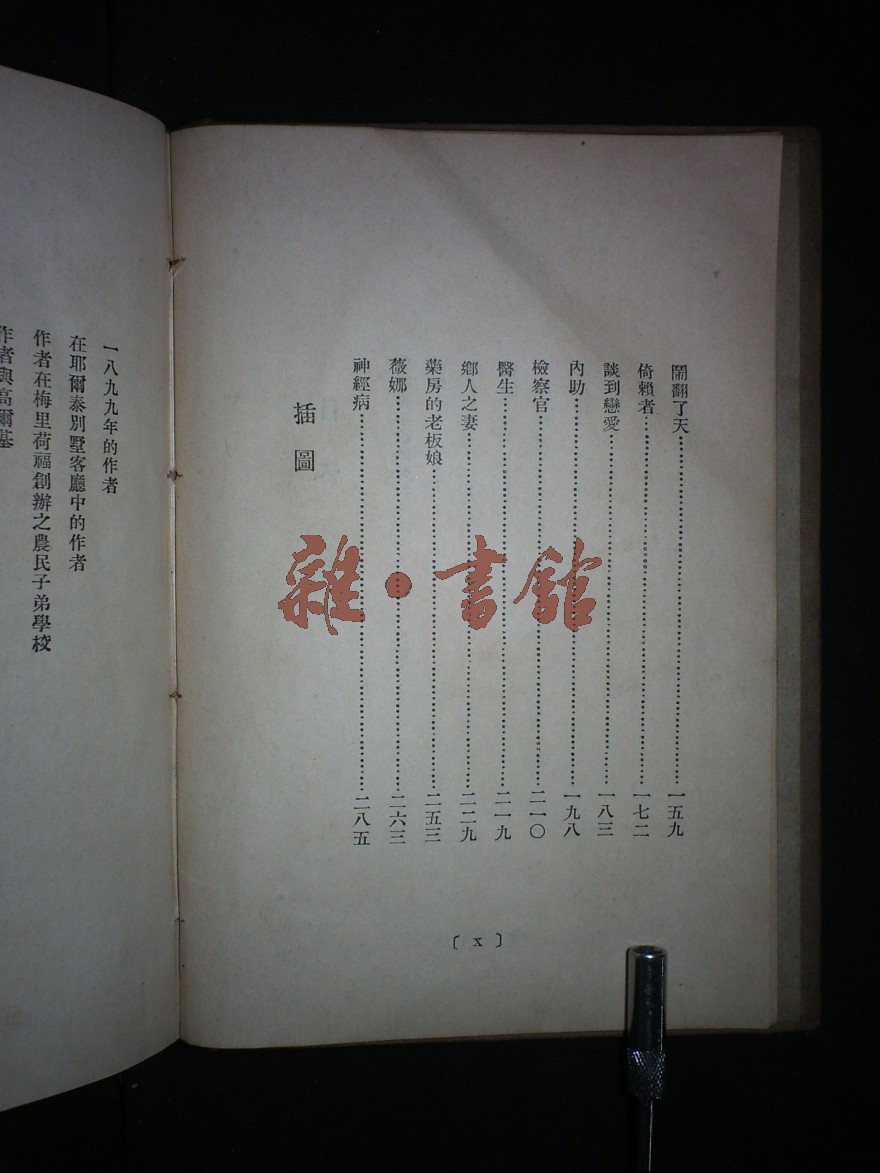 鬧翻了天……一五九
倚賴者……一七二
談到戀愛……一八三
內助……一九八
檢察官……二一〇
醫生……二一九
鄉人之妻……二二九
藥房的老板娘……二五三
薇娜……二六三
神經病……二八五
插圖
〔 x 〕
一八九九年的作者
在耶爾泰別墅客廳中的作者
作者在梅里荷福創辦之農民子弟學校
作者與高爾基
雜·書館